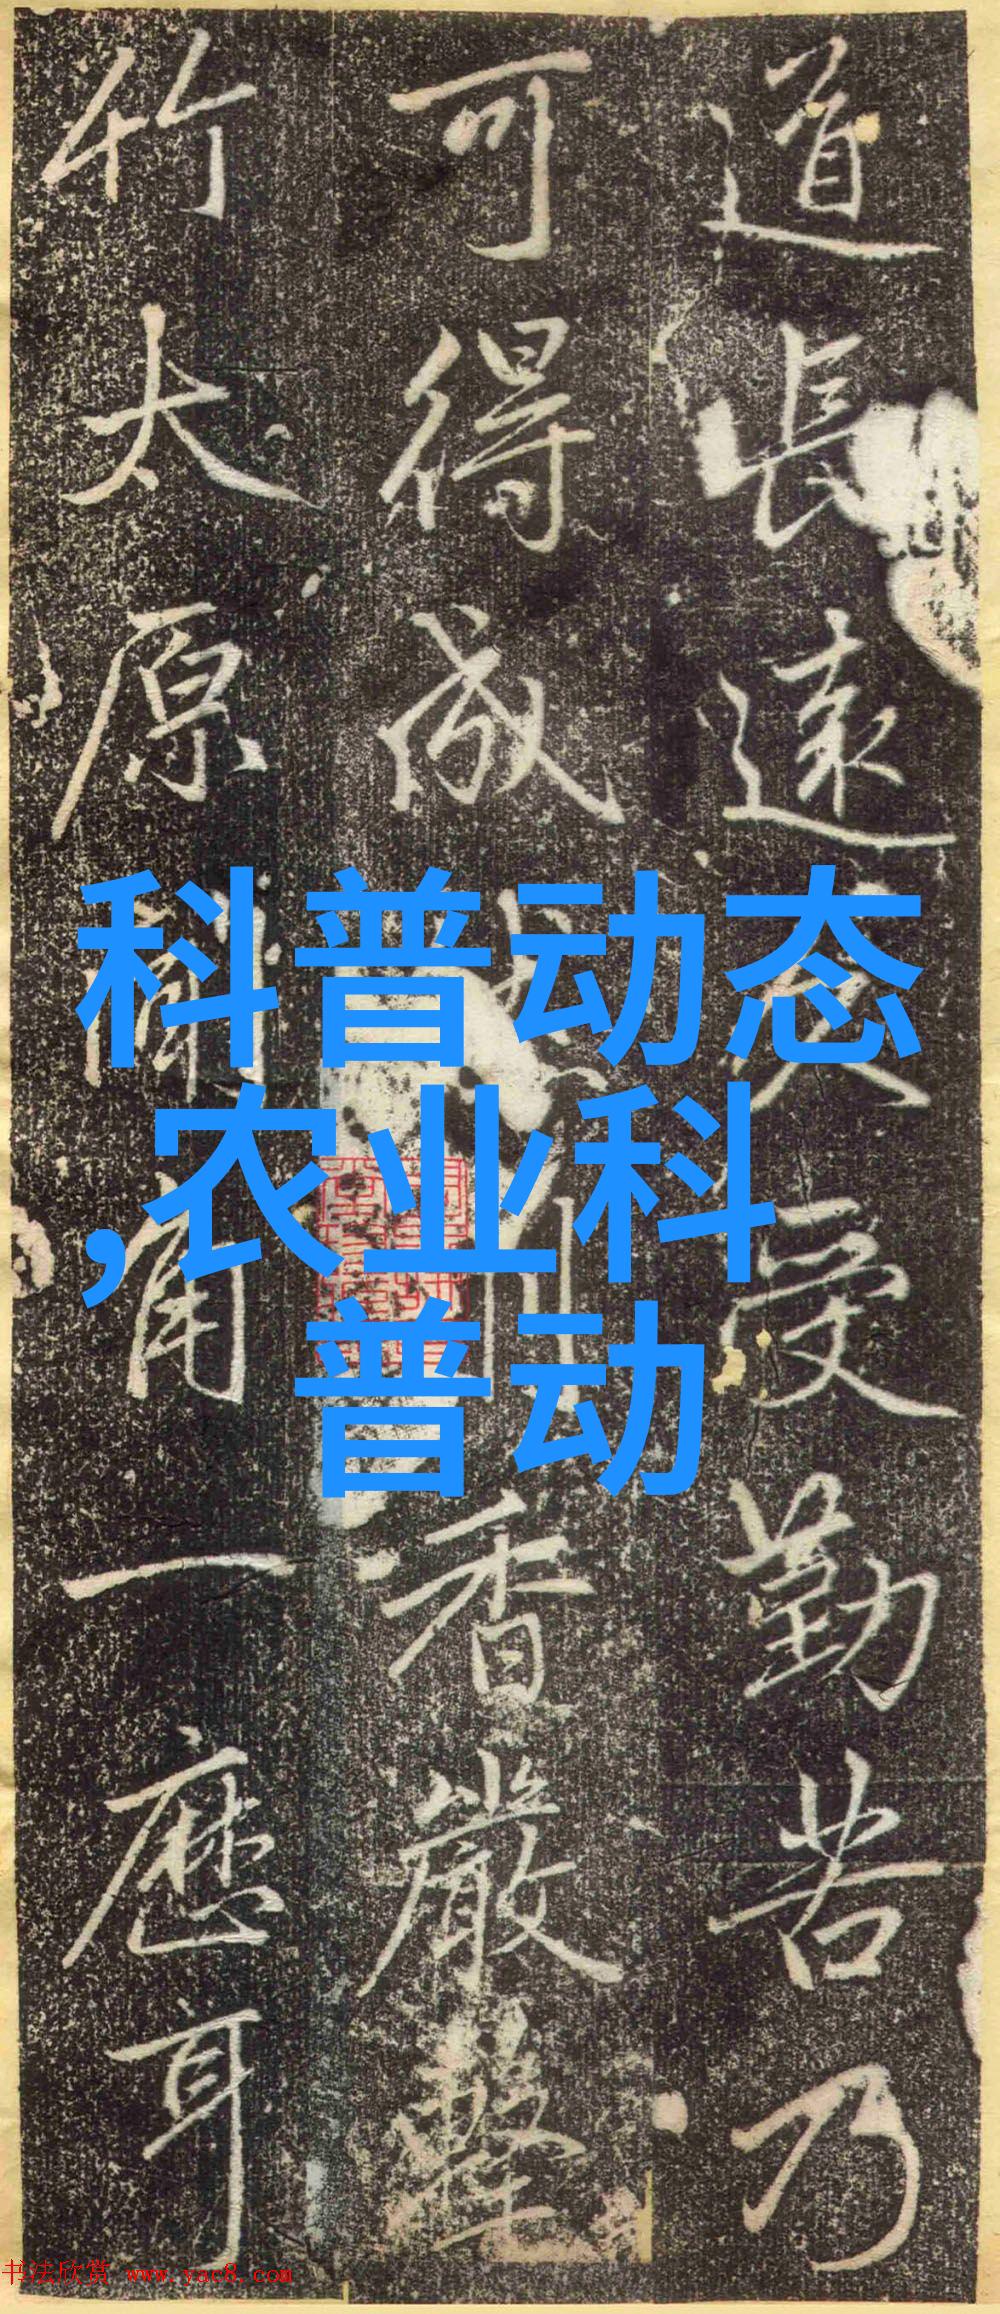 道長遠久受勤苦乃
可得成香嚴擊
竹太原聞角一應耳
科普动态
,农业科
普动
书法欣赏 www.yac8.com